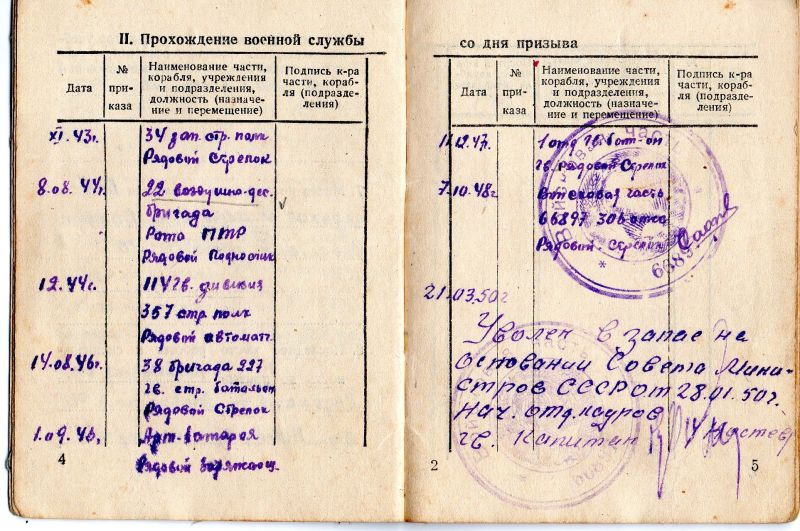 II. Прохождение военной службы
Дата
№ при-
каза
Наименование части,
корабля, учреждения
и подразделения,
должность (назначе-
ние и перемещение)
Подпись к-ра
части, кораб-
ля (подразде-
ления)
XI.43г.
34 зап. стр. полк
Рядовой Стрелок
8.08.44г.
22 воздушно-дес.
бригада
Рота ПТР
Рядовой Подносчик
12.44г.
114 гв. дивизия
357 стр. полк
Рядовой автомат.
14.08.46г.
38 бригада 227
гв. стр. батальон
Рядовой Стрелок
1.09.46г.
Арт-батарея
Рядовой Заряжающ.
4
со дня призыва
Дата
№ при-
каза
Наименование части,
корабля, учреждения
и подразделения,
должность (назначе-
ние и перемещение)
Подпись к-ра
части, кораб-
ля (подразде-
ления)
11.12.47.
1 отд гв. бат-он
гв. рядовой Стрелок
7.10.48г
Войсковая часть
66897
Рядовой-стрелок
21.03.50г
Уволен в запас на
основании Совета Мини-
стров СССР от 28.01.50г.
Нач. отд. кадров
гв. Капитан
2
5